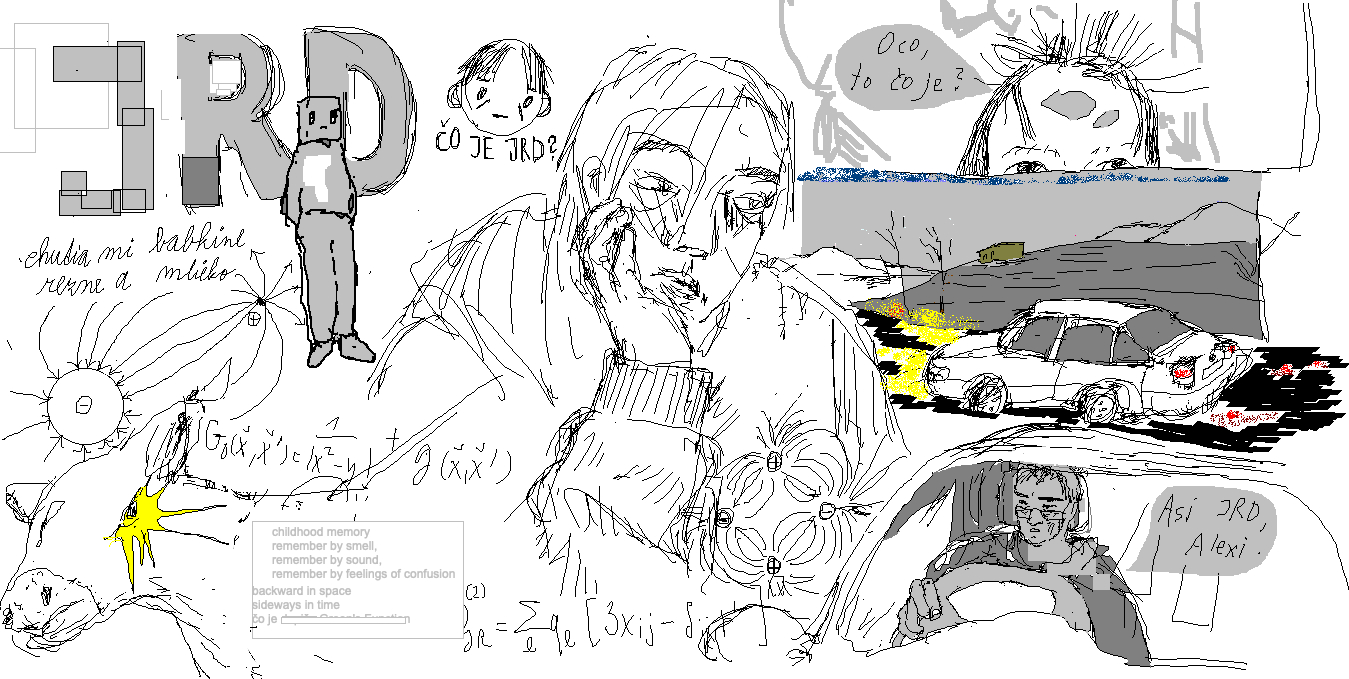 JRD
ČO JE JRD?
Oco,
to čo je?
chudia mi babkine
rezne a mlieko
G₀(x⃗, x⃗') = 1/|x⃗ - y| + g(x⃗, x⃗')
childhood memory
remember by smell,
remember by sound,
remember by feelings of confusion
backward in space
sideways in time
čo je
Asi JRD,
Alexi.
(2)
= Σ qₑ [3xᵢⱼ - δ